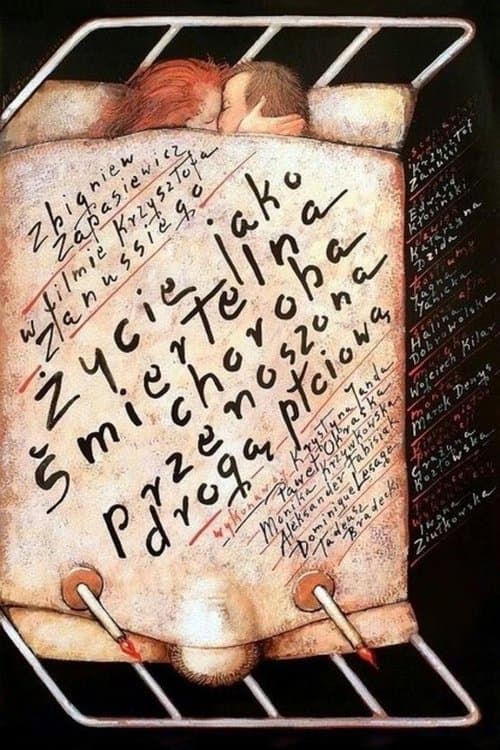 Zbigniew
Zapasiewicz
w filmie Krzysztofa
Zanussiego
Życie jako
śmiertelna
choroba
przenoszona
drogą płciową
wykonawcy Krystyna Janda
Paweł Okraska
Monika Krzywkowska
Aleksander Fabisiak
Dominique Lesage
Tadeusz
Bradecki
Scenariusz
Krzysztof
Zanussi
Edward
Kłosiński
Dziduszna
kostiumy
Jagna
Janicka
Halina
Dobrowolska
Wojciech Kilar
montaż
Marek Denys
Grażyna
Kozłowska
Iwona
Ziułkowska